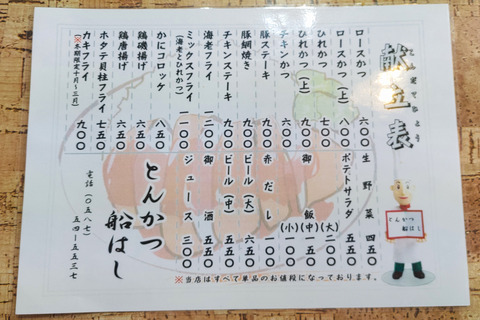 献立表
こんだてひょう
ロースかつ 六〇〇
ロースかつ(上) 八〇〇
ひれかつ 七〇〇
ひれかつ(上) 九〇〇
チキンかつ 六〇〇
豚ステーキ 九〇〇
豚網焼き 九〇〇
チキンステーキ 九〇〇
海老フライ 一二〇〇
ミックスフライ 一一〇〇
(海老とひれかつ)
かにコロッケ 八五〇
鶏磯揚げ 六五〇
鶏唐揚げ 六五〇
ホタテ貝柱フライ 七五〇
カキフライ 九〇〇
(※冬期限定十月~三月)
生野菜 四五〇
ポテトサラダ 五五〇
御飯(大) 二〇〇
(中) 一五〇
(小) 一〇〇
赤だし 一〇〇
ビール(大) 六五〇
ビール(中) 五五〇
御酒 五五〇
ジュース 三〇〇
とんかつ
船はし
電話(〇五八七)
五四ー五五三七
※当店はすべて単品のお値段になっております。
とんかつ
船はし